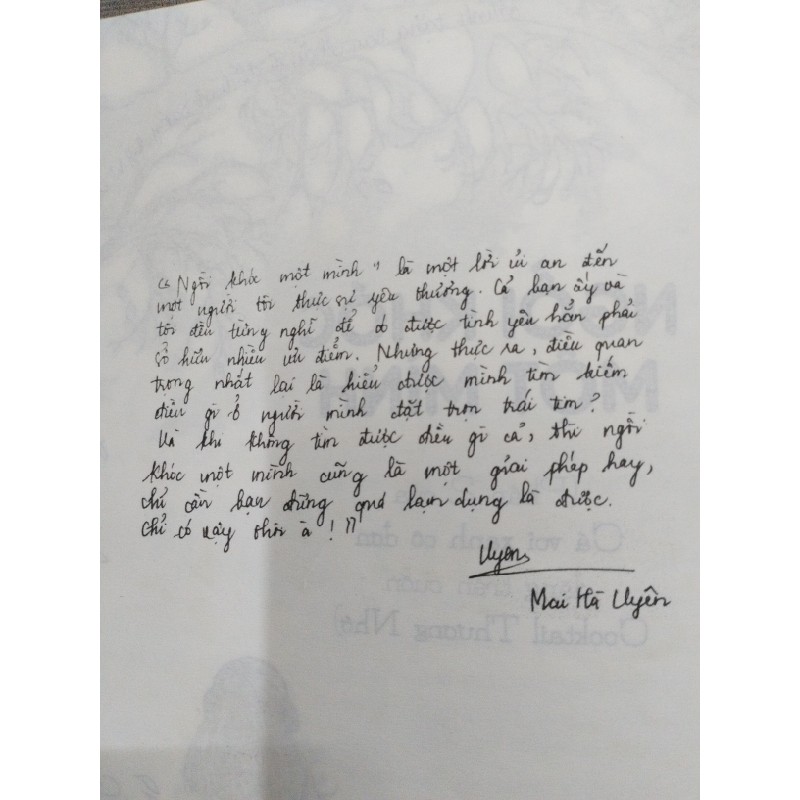 "Ngồi khóc một mình" là một lời ủi an đến
một người tôi thực sự yêu thương. Cả bạn ấy và
tôi đều từng nghĩ để có được tình yêu hẳn phải
sở hữu nhiều ưu điểm. Nhưng thực ra, điều quan
trọng nhất lại là hiểu được mình tìm kiếm
điều gì ở người mình đặt trọn trái tim?
Và khi không tìm được điều gì cả, thì ngồi
khóc một mình cũng là một giải pháp hay,
chỉ cần bạn đừng quá lạm dụng là được.
Chỉ có vậy thôi à!"
Uyên
Mai Hà Uyên
NGỒI KHÓC
MỘT MÌNH
Cá voi xanh cô đơn
Cocktail Thương Nhớ)